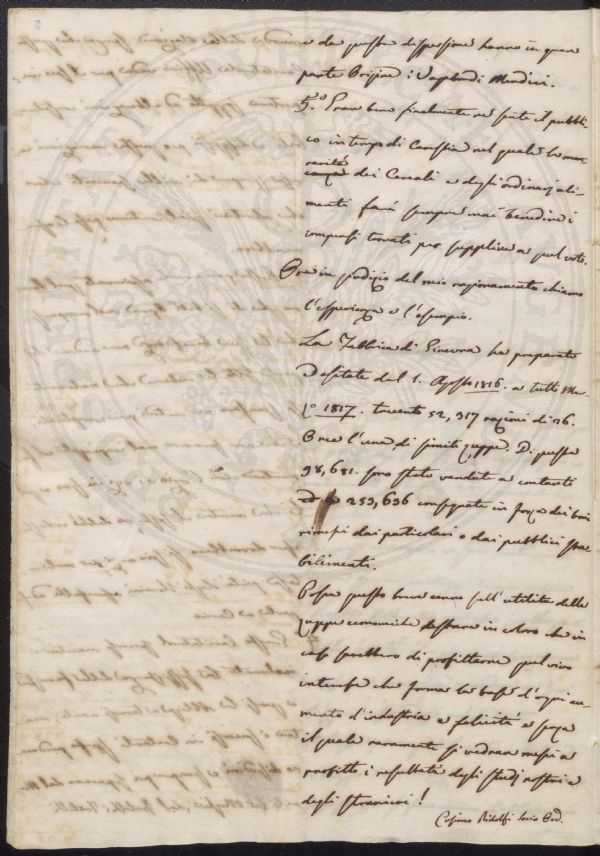 e da questa dispersione hanno in gran
parte Origine i Vagabondi Mendici.
5.º Gran bene finalmente ne sente il pubbli-
co in tempo di Carestia nel quale la
rarità dei Cereali e degli ordinarj ali-
menti farà sempre mai benedire i
compensi trovati per supplire a quel voto.
Ora in prodigio del mio ragionamento chiamo
l'esperienza e l'esempio.
La Fabbrica di Ginevra ha preparate
e esitate dal 1. Agosto 1816. a tutto Mar-
zo 1817. trecento 52,317 razioni di 26.
Once l'una di simili zuppe. Di queste
98,681. sono state vendute a contanti
e 253,636 consegnate in forza dei buoni
rimessi dai particolari o dai pubblici sta-
bilimenti.
Possa questo breve cenno sull'utilità delle
zuppe economiche destare in coloro che in
caso sarebbero di profittarne quel vivo
interesse che forma la base d'ogni au-
mento d'industria e felicità e senza
il quale raramente si vedran messi a
profitto i resultati degli studj nostri e
degli stranieri!
Cosimo Ridolfi Socio Ord.